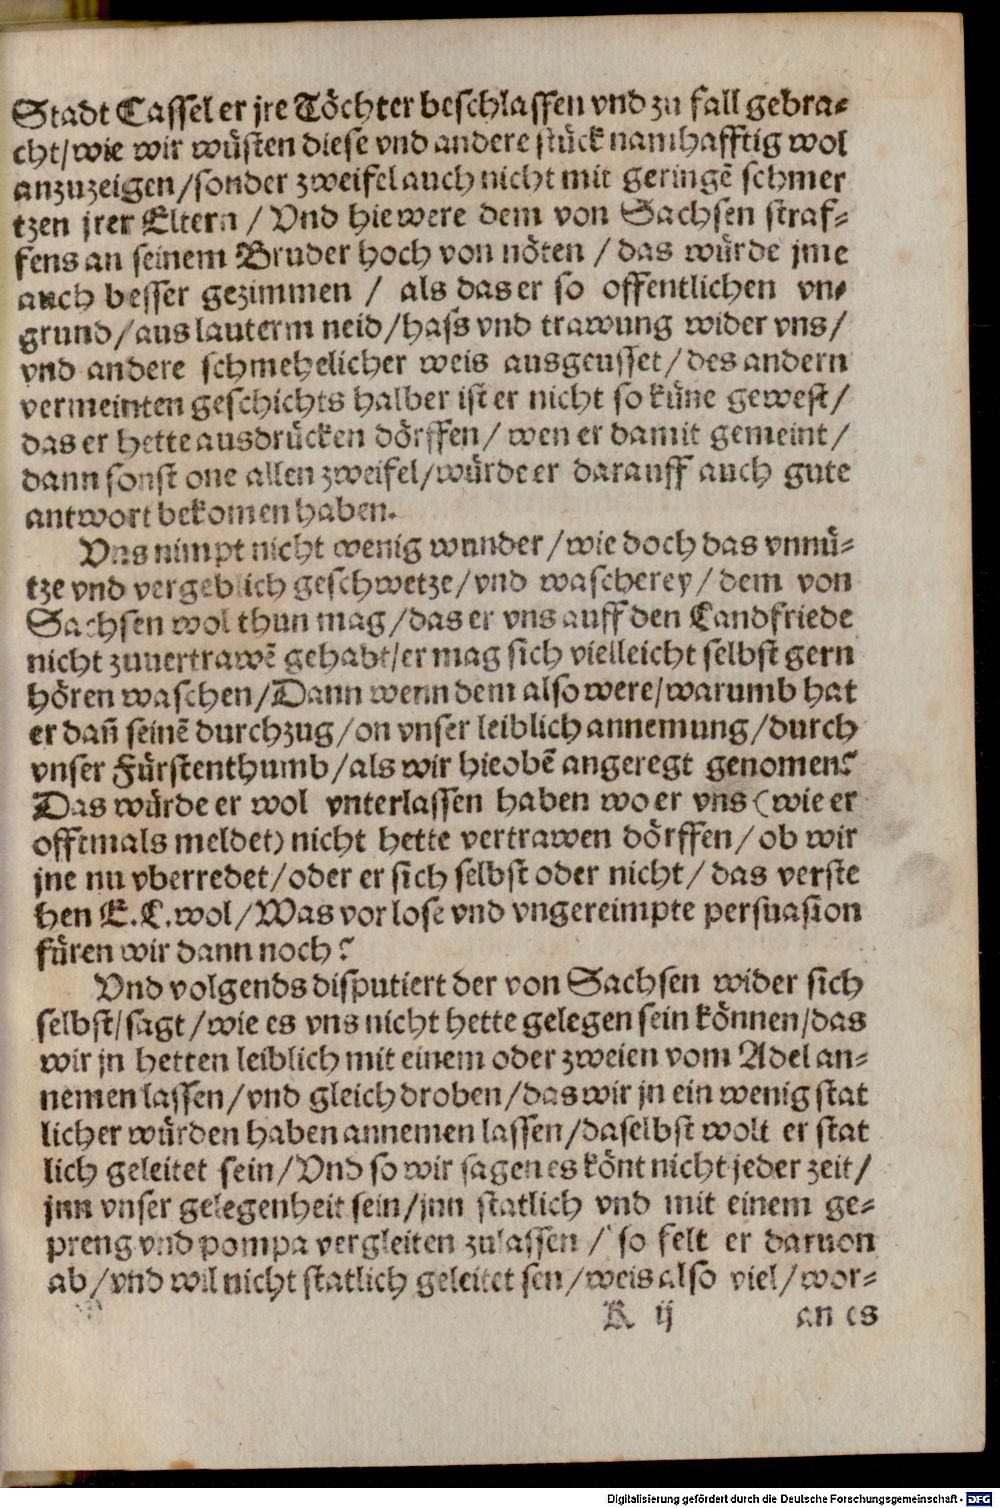 Stadt Cassel er jre Töchter beschlaffen vnd zu fall gebra-
cht/wie wir wüsten diese vnd andere stück namhafftig wol
anzuzeigen/sonder zweifel auch nicht mit geringē schmer
tzen jrer Eltern / Vnd hie were dem von Sachsen straf-
fens an seinem Bruder hoch von nöten / das würde jme
auch besser gezimmen / als das er so offentlichen vn-
grund/aus lauterm neid/hass vnd trawung wider vns/
vnd andere schmehelicher weis ausgeusset/des andern
vermeinten geschichts halber ist er nicht so küne gewest/
das er hette ausdrücken dörffen/wen er damit gemeint/
dann sonst one allen zweifel/würde er darauff auch gute
antwort bekomen haben.
Vns nimpt nicht wenig wunder/wie doch das vnnü-
tze vnd vergeblich geschwetze/vnd wascherey/dem von
Sachsen wol thun mag/das er vns auff den Landfriede
nicht zuuertrawē gehabt/er mag sich vielleicht selbst gern
hören waschen/Dann wenn dem also were/warumb hat
er dañ seinē durchzug/on vnser leiblich annemung/durch
vnser Fürstenthumb/als wir hieobē angeregt genomen?
Das würde er wol vnterlassen haben wo er vns (wie er
offtmals meldet) nicht hette vertrawen dörffen/ob wir
jne nu vberredet/oder er sich selbst oder nicht/das verste
hen E.L.wol/Was vor lose vnd vngereimpte persuasion
füren wir dann noch?
Vnd volgends disputiert der von Sachsen wider sich
selbst/sagt/wie es vns nicht hette gelegen sein können/das
wir jn hetten leiblich mit einem oder zweien vom Adel an-
nemen lassen/vnd gleich droben/das wir jn ein wenig stat
licher würden haben annemen lassen/daselbst wolt er stat
lich geleitet sein/Vnd so wir sagen es könt nicht jeder zeit/
jnn vnser gelegenheit sein/jnn statlich vnd mit einem ge-
preng vnd pompa vergleiten zulassen / so felt er daruon
ab/vnd wil nicht statlich geleitet sen/weis also viel/wor-
K ij an es
Digitalisierung gefördert durch die Deutsche Forschungsgemeinschaft - DFG